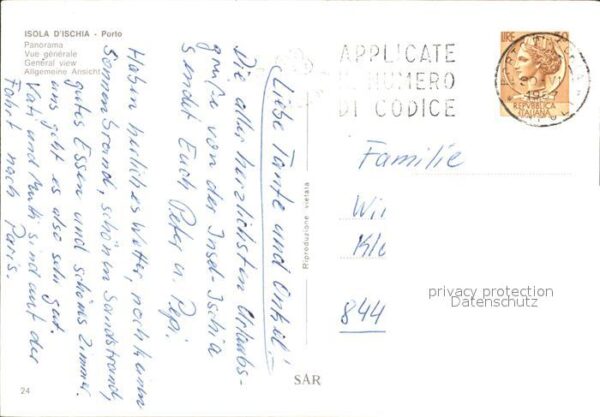 ISOLA D'ISCHIA - Porto
Panorama
Vue générale
General view
Allgemeine Ansicht
Liebe Tante und Onkel!
Die aller herzlichsten Urlaubs-
grüße von der Insel-Ischia
sendet Euch Peter u. Pepi.
Haben herliches Wetter, noch keinen
Sonnenbrand, schönen Sandstrand,
gutes Essen und schönes Zimmer.
uns geht es also sehr gut
Vati und Mutti sind auf der
Fahrt nach Paris.
Riproduzione vietata
SAR
24
APPLICATE
NUMERO
DI CODICE
LIRE
REPVBBLICA
ITALIANA
Familie
Wi
Kl
844
privacy protection
Datenschutz